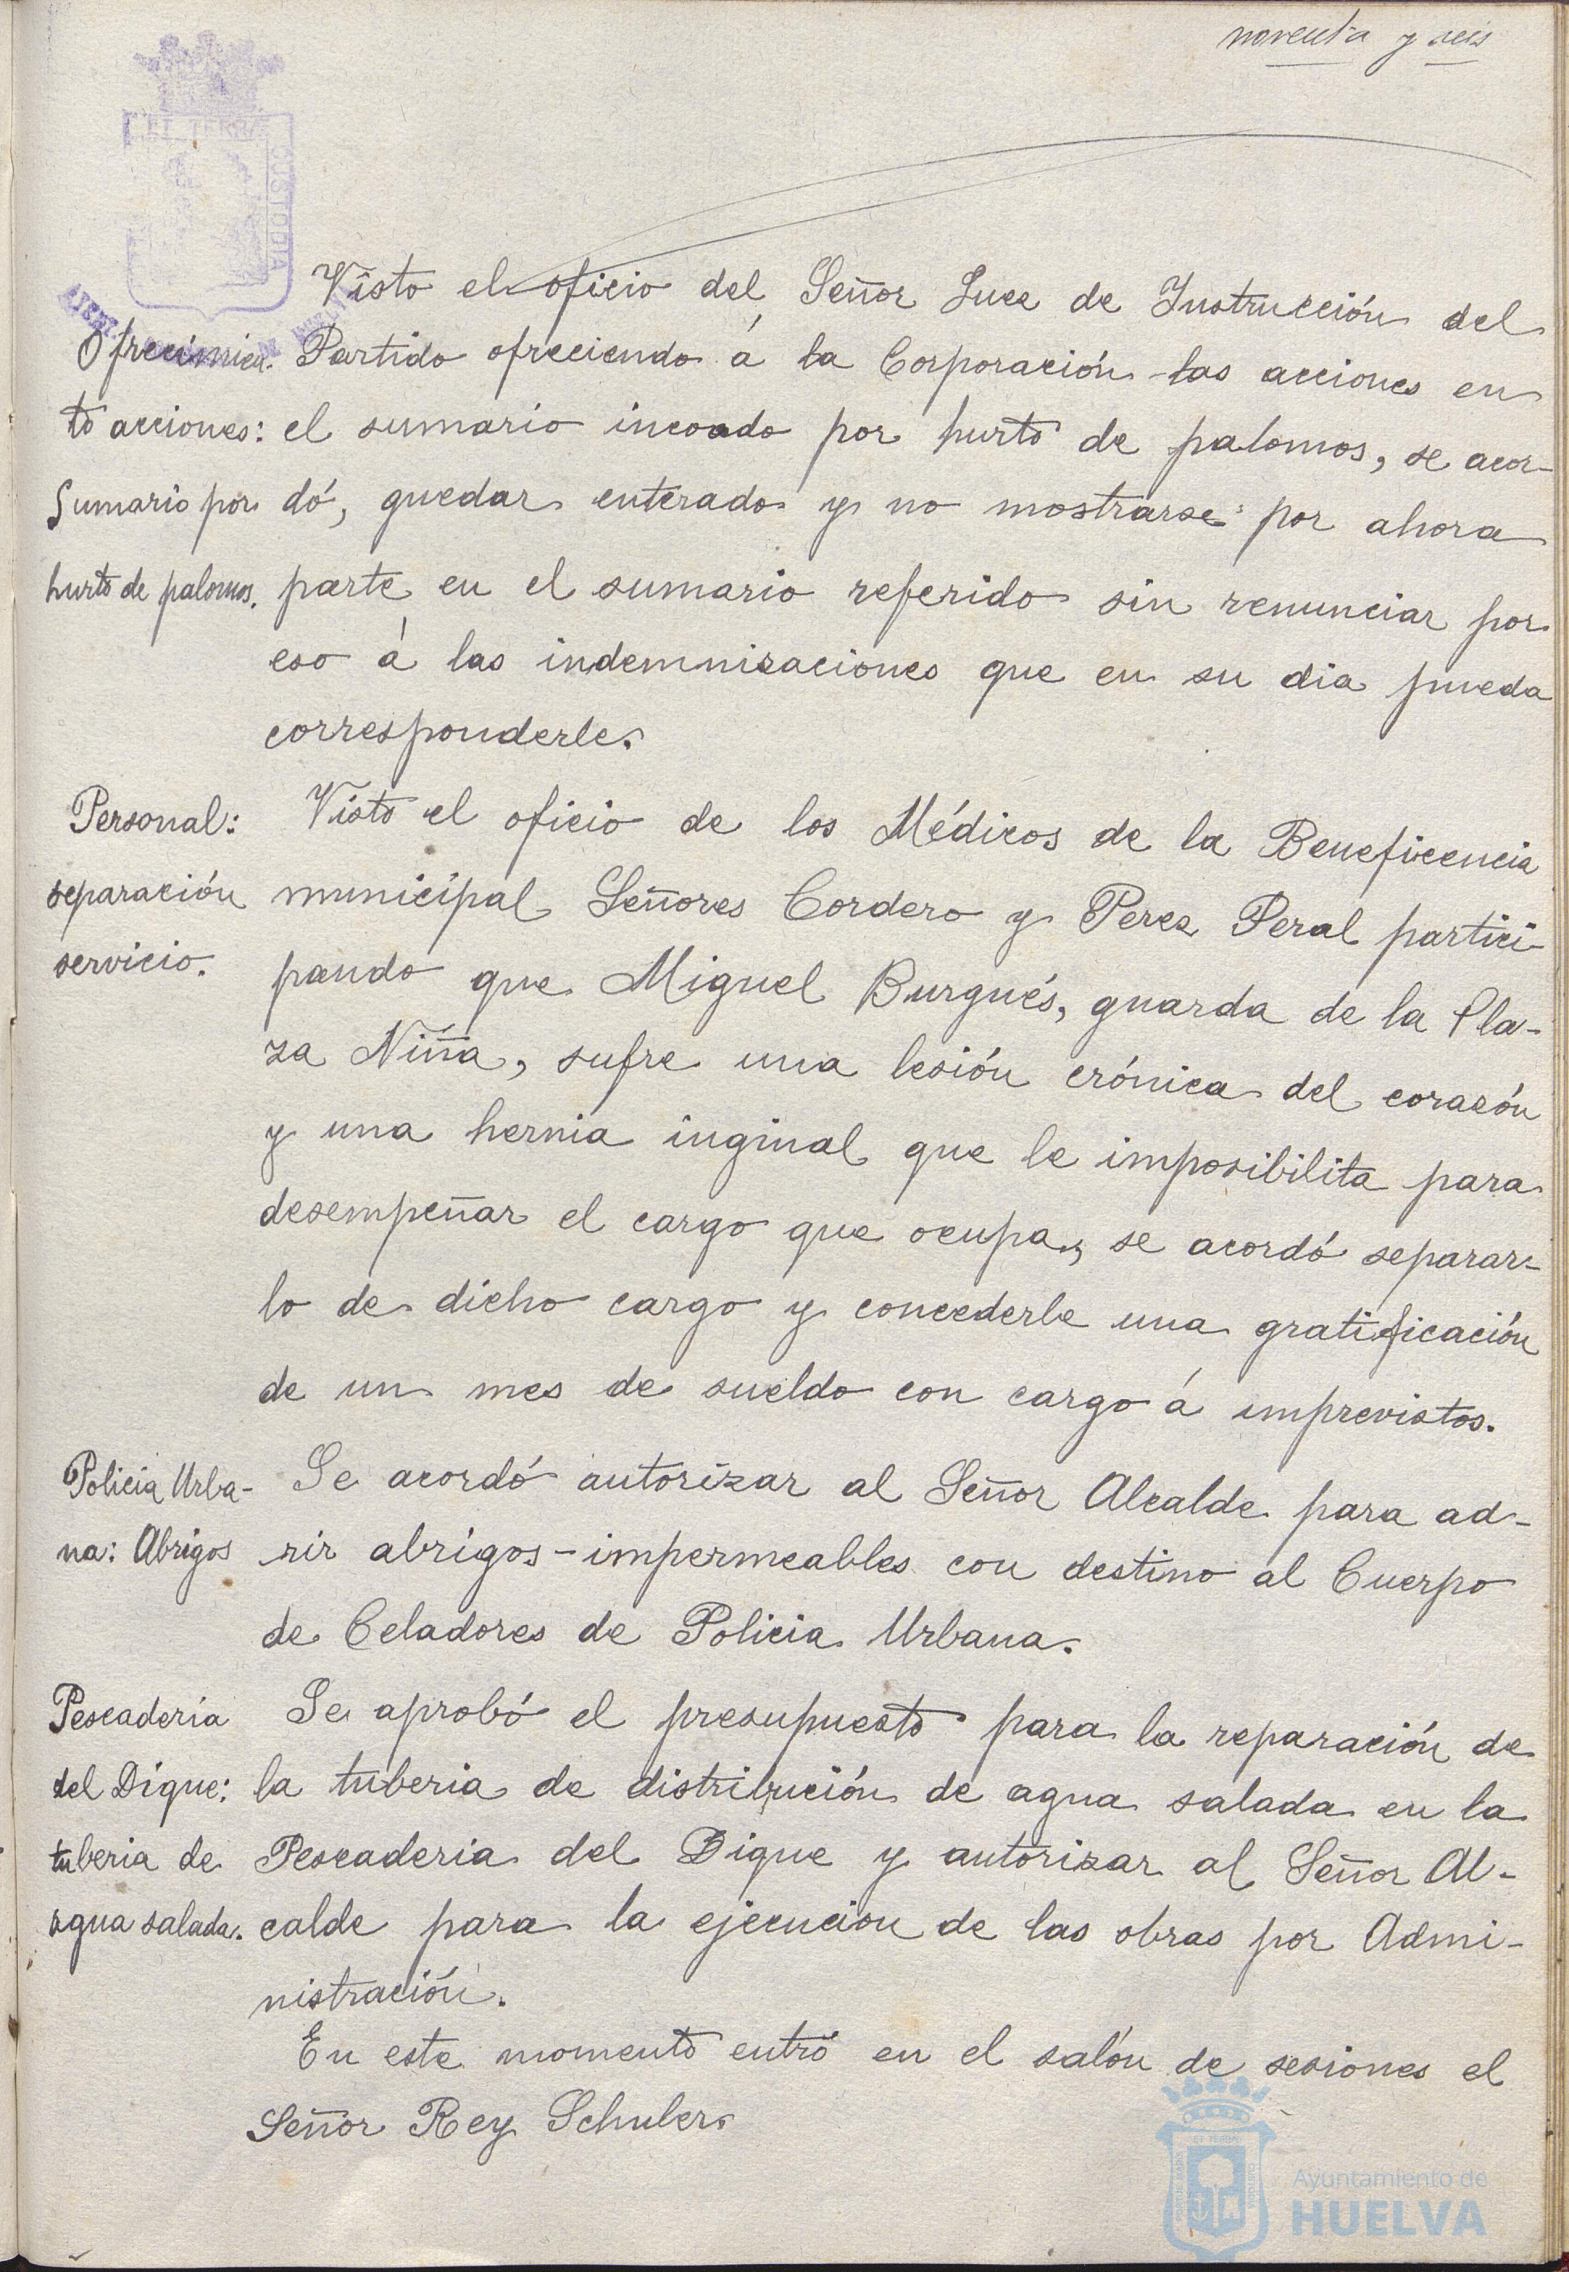 noventa y seis
ET TERRÆ
CUSTODIA
Visto el oficio del Señor Juez de Instrucción del
Ofrecimien- Partido ofreciendo á la Corporación las acciones en
to acciones: el sumario incoado por hurto de palomos, se acor-
Sumario por dó, quedar enterado y no mostrarse por ahora
hurto de palomos. parte en el sumario referido sin renunciar por
eso á las indemnizaciones que en su dia pueda
corresponderle.
Personal: Visto el oficio de los Médicos de la Beneficencia
separación municipal Señores Cordero y Perez Peral partici-
servicio. pando que Miguel Burgués, guarda de la Pla-
za Niña, sufre una lesión crónica del corazón
y una hernia inginal que le imposibilita para
desempeñar el cargo que ocupa, se acordó separar-
lo de dicho cargo y concederle una gratificación
de un mes de sueldo con cargo á imprevistos.
Policia Urba- Se acordó autorizar al Señor Alcalde para ad-
na: Abrigos rir abrigos-impermeables con destino al Cuerpo
de Celadores de Policia Urbana.
Pescadería Se aprobó el presupuesto para la reparación de
del Dique: la tuberia de distribución de agua salada en la
tuberia de Pescaderia del Dique y autorizar al Señor Al-
agua salada. calde para la ejecucion de las obras por Admi-
nistración.
En este momento entró en el salón de sesiones el
Señor Rey Schuler.
Ayuntamiento de
HUELVA